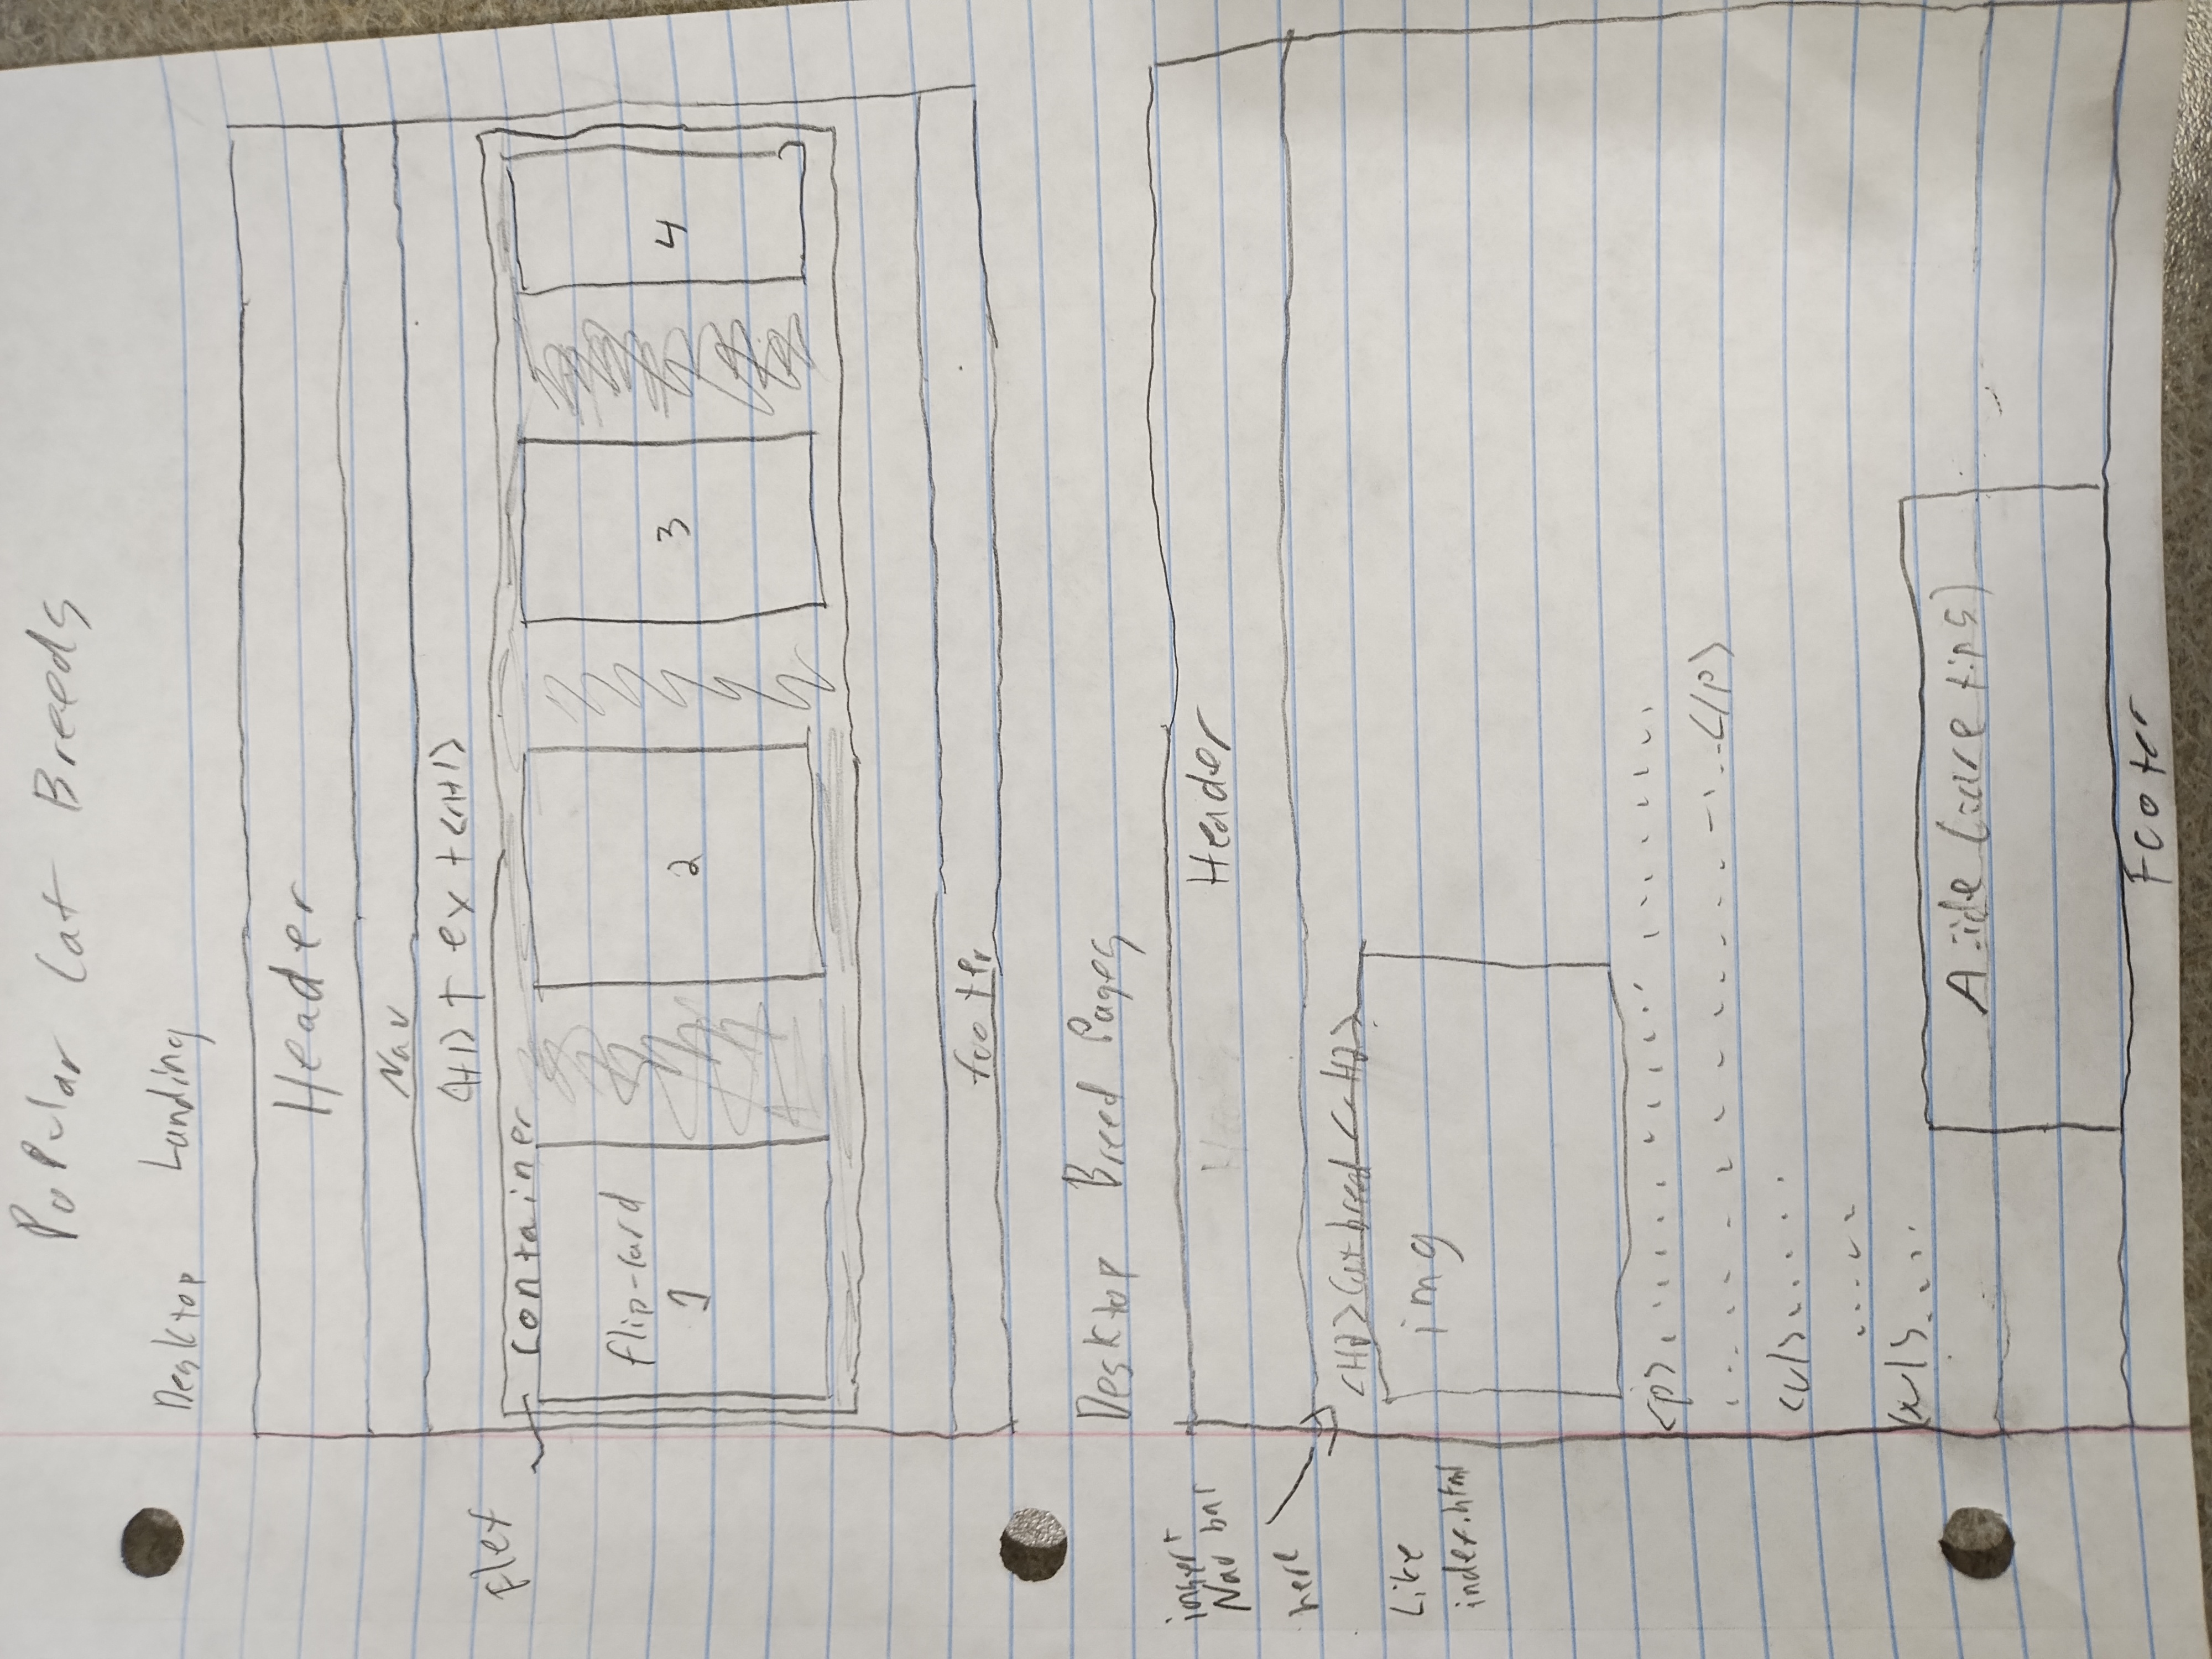 Popular Cat Breeds
Desktop Landing
Header
Nav
<H1> text <H1>
flex
container
flip-card
1
2
3
4
footer
Desktop Breed Pages
Header
insert
Nav bar
here
Like
index.html
img
<p>
</p>
<ul>
Aside (care tips)
Footer